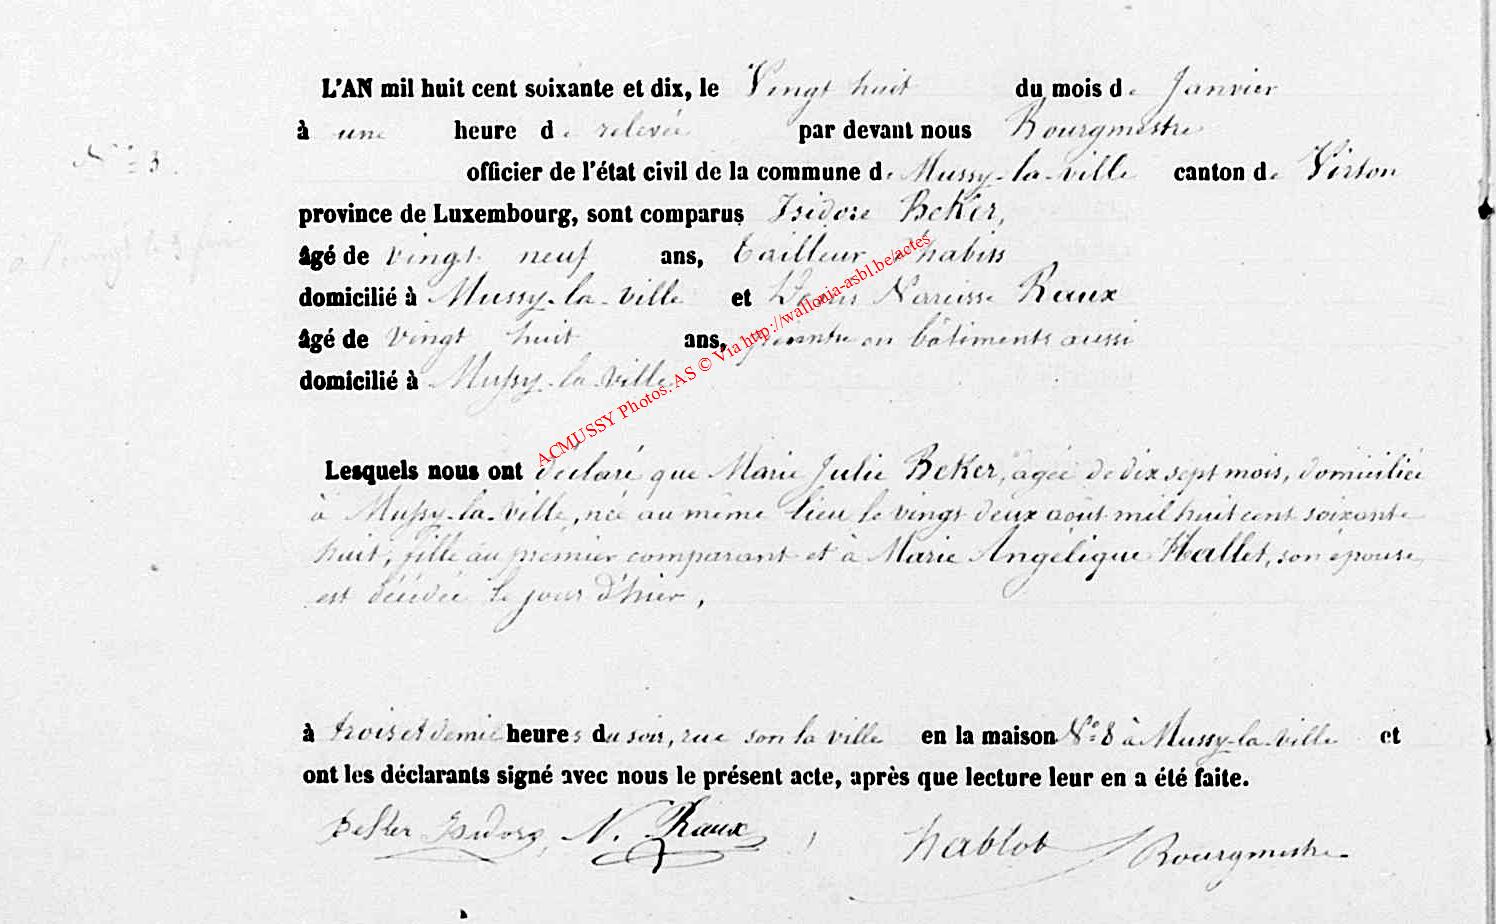 L'AN mil huit cent soixante et dix, le Vingt huit du mois de Janvier
à une heure de relevée par devant nous Bourgmestre
N° 3.
officier de l'état civil de la commune de Mussy-la-ville canton de Virton
province de Luxembourg, sont comparus Isidore Beker,
âgé de vingt neuf ans, tailleur d'habits
domicilié à Mussy-la-ville et Narcisse Raux
âgé de vingt huit ans, peintre en bâtiments aussi
domicilié à Mussy-la-Ville
ACMUSSY Photos. AS © Via http://wallonia-asbl.be/actes
Lesquels nous ont déclaré que Marie Julie Beker, agée de dix sept mois, domiciliée
à Mussy-la-Ville, née au même lieu le vingt deux août mil huit cent soixante
huit, fille au premier comparant et à Marie Angélique Hallet, son épouse,
est décédée le jour d'hier,
à trois et demie heures du soir, rue la ville en la maison N° 8 à Mussy-la-Ville et
ont les déclarants signé avec nous le présent acte, après que lecture leur en a été faite.
Beker Isidore, N. Raux, Hablot Bourgmestre